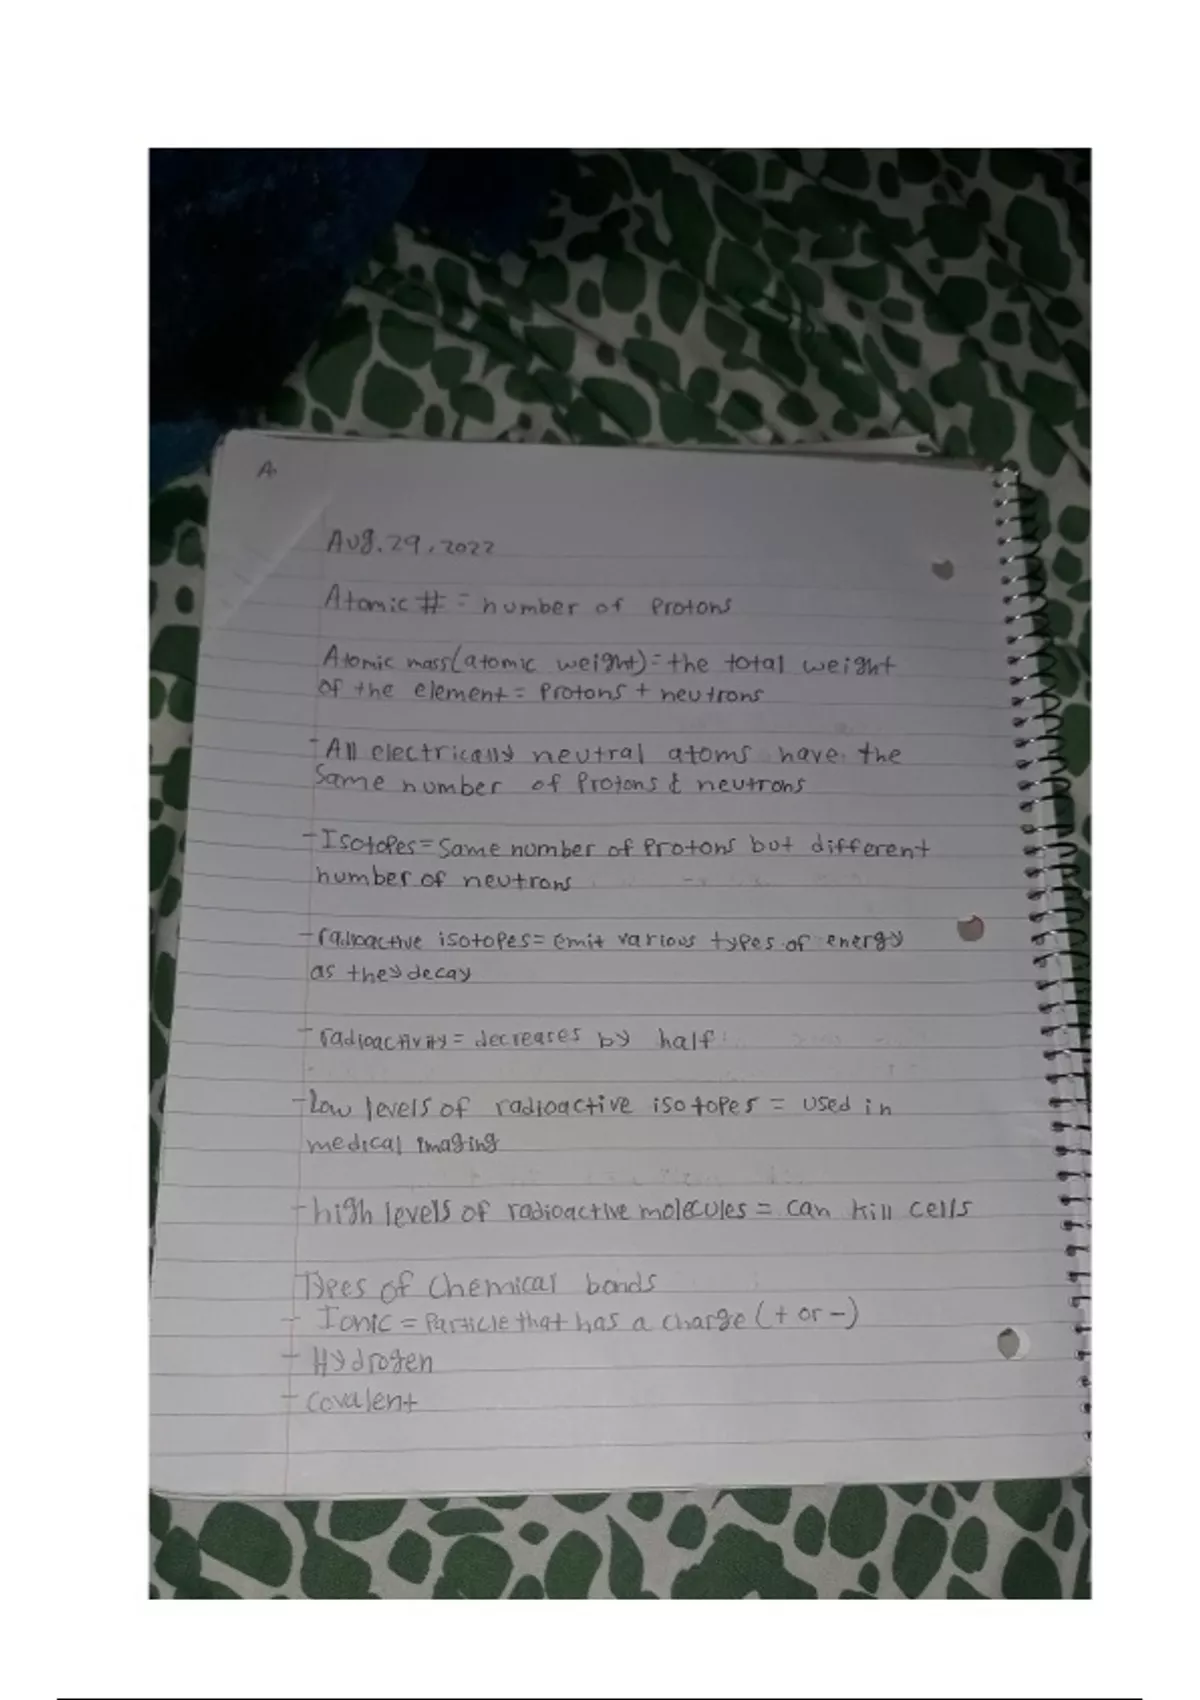 A
Aug. 29, 2022
Atomic # = number of protons
Atomic mass (atomic weight) = the total weight
of the element = protons + neutrons
- All electrically neutral atoms have the
same number of protons & neutrons
- Isotopes = same number of protons but different
number of neutrons
- radioactive isotopes = emit various types of energy
as they decay
- radioactivity = decreases by half
- Low levels of radioactive isotopes = used in
medical imaging
- high levels of radioactive molecules = can kill cells
Types of Chemical bonds
- Ionic = Particle that has a charge (+ or -)
- Hydrogen
- Covalent